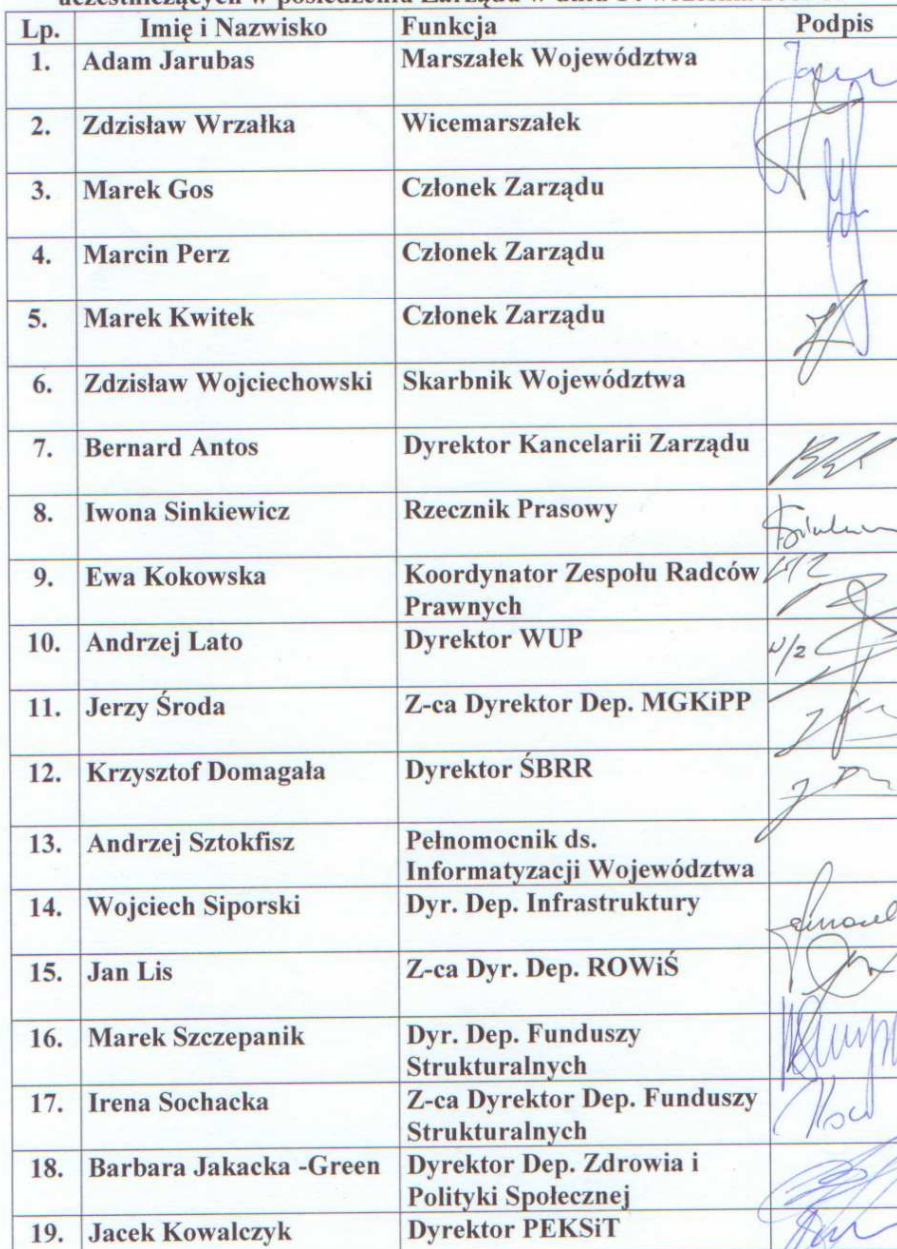 uczestniczących w posiedzeniu Zarządu w dniu
Lp. Imię i Nazwisko Funkcja Podpis
1. Adam Jarubas Marszałek Województwa
2. Zdzisław Wrzałka Wicemarszałek
3. Marek Gos Członek Zarządu
4. Marcin Perz Członek Zarządu
5. Marek Kwitek Członek Zarządu
6. Zdzisław Wojciechowski Skarbnik Województwa
7. Bernard Antos Dyrektor Kancelarii Zarządu
8. Iwona Sinkiewicz Rzecznik Prasowy
9. Ewa Kokowska Koordynator Zespołu Radców
Prawnych
10. Andrzej Lato Dyrektor WUP
11. Jerzy Środa Z-ca Dyrektor Dep. MGKiPP
12. Krzysztof Domagała Dyrektor ŚBRR
13. Andrzej Sztokfisz Pełnomocnik ds.
Informatyzacji Województwa
14. Wojciech Siporski Dyr. Dep. Infrastruktury
15. Jan Lis Z-ca Dyr. Dep. ROWiŚ
16. Marek Szczepanik Dyr. Dep. Funduszy
Strukturalnych
17. Irena Sochacka Z-ca Dyrektor Dep. Funduszy
Strukturalnych
18. Barbara Jakacka -Green Dyrektor Dep. Zdrowia i
Polityki Społecznej
19. Jacek Kowalczyk Dyrektor PEKSiT